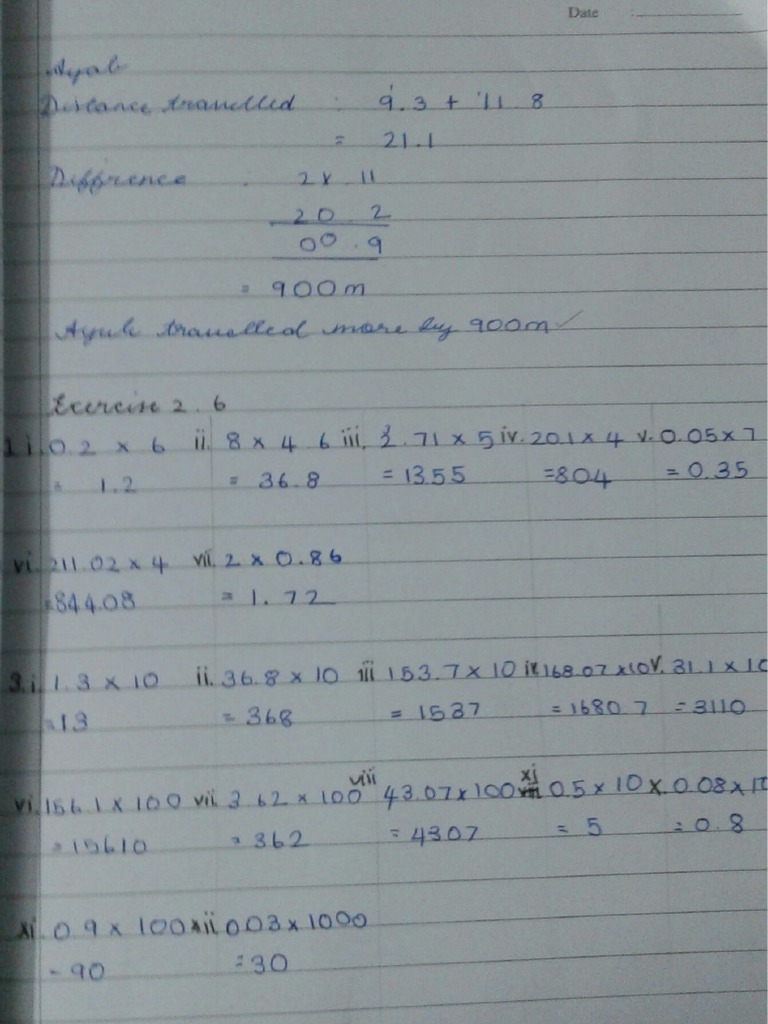 Date :
Ayub
Distance travelled : 9.3 + 11 8
= 21.1
Difference : 2x.11
20.2
00.9
= 900m
Ayub travelled more by 900m ✓
Exercise 2.6
1 i. 0.2 x 6 ii. 8 x 4 6 iii. 2.71 x 5 iv. 20.1 x 4 v. 0.05 x 7
= 1.2 = 36.8 = 13.55 = 80.4 = 0.35
vi. 211.02 x 4 vii. 2 x 0.86
= 844.08 = 1.72
3. i. 1.3 x 10 ii. 36.8 x 10 iii 153.7 x 10 iv 168.07 x 10 v. 31.1 x 10
= 13 = 368 = 1537 = 1680 7 = 3110
vi. 156.1 x 100 vii. 3.62 x 100 viii 43.07 x 100 xi 0.5 x 10 x. 0.08 x 10
= 15610 = 362 = 4307 = 5 = 0.8
xi. 0.9 x 100 xii 0.03 x 1000
= 90 = 30